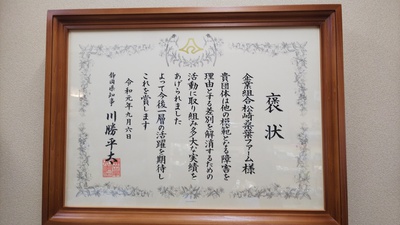 褒状
企業組合松崎桑葉ファーム様
貴団体は他の模範となる障害を
理由とする差別を解消するための
活動に取り組み多大な実績を
あげられました
よって今後一層の活躍を期待し
これを賞します
令和元年九月六日
静岡県知事 川勝平太